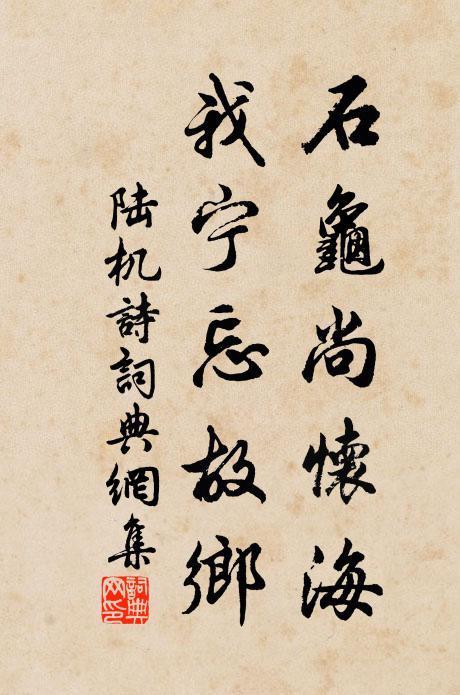 石龜尚懷海
我宁忘故鄉
陆机詩詞典網集
詞典
网印